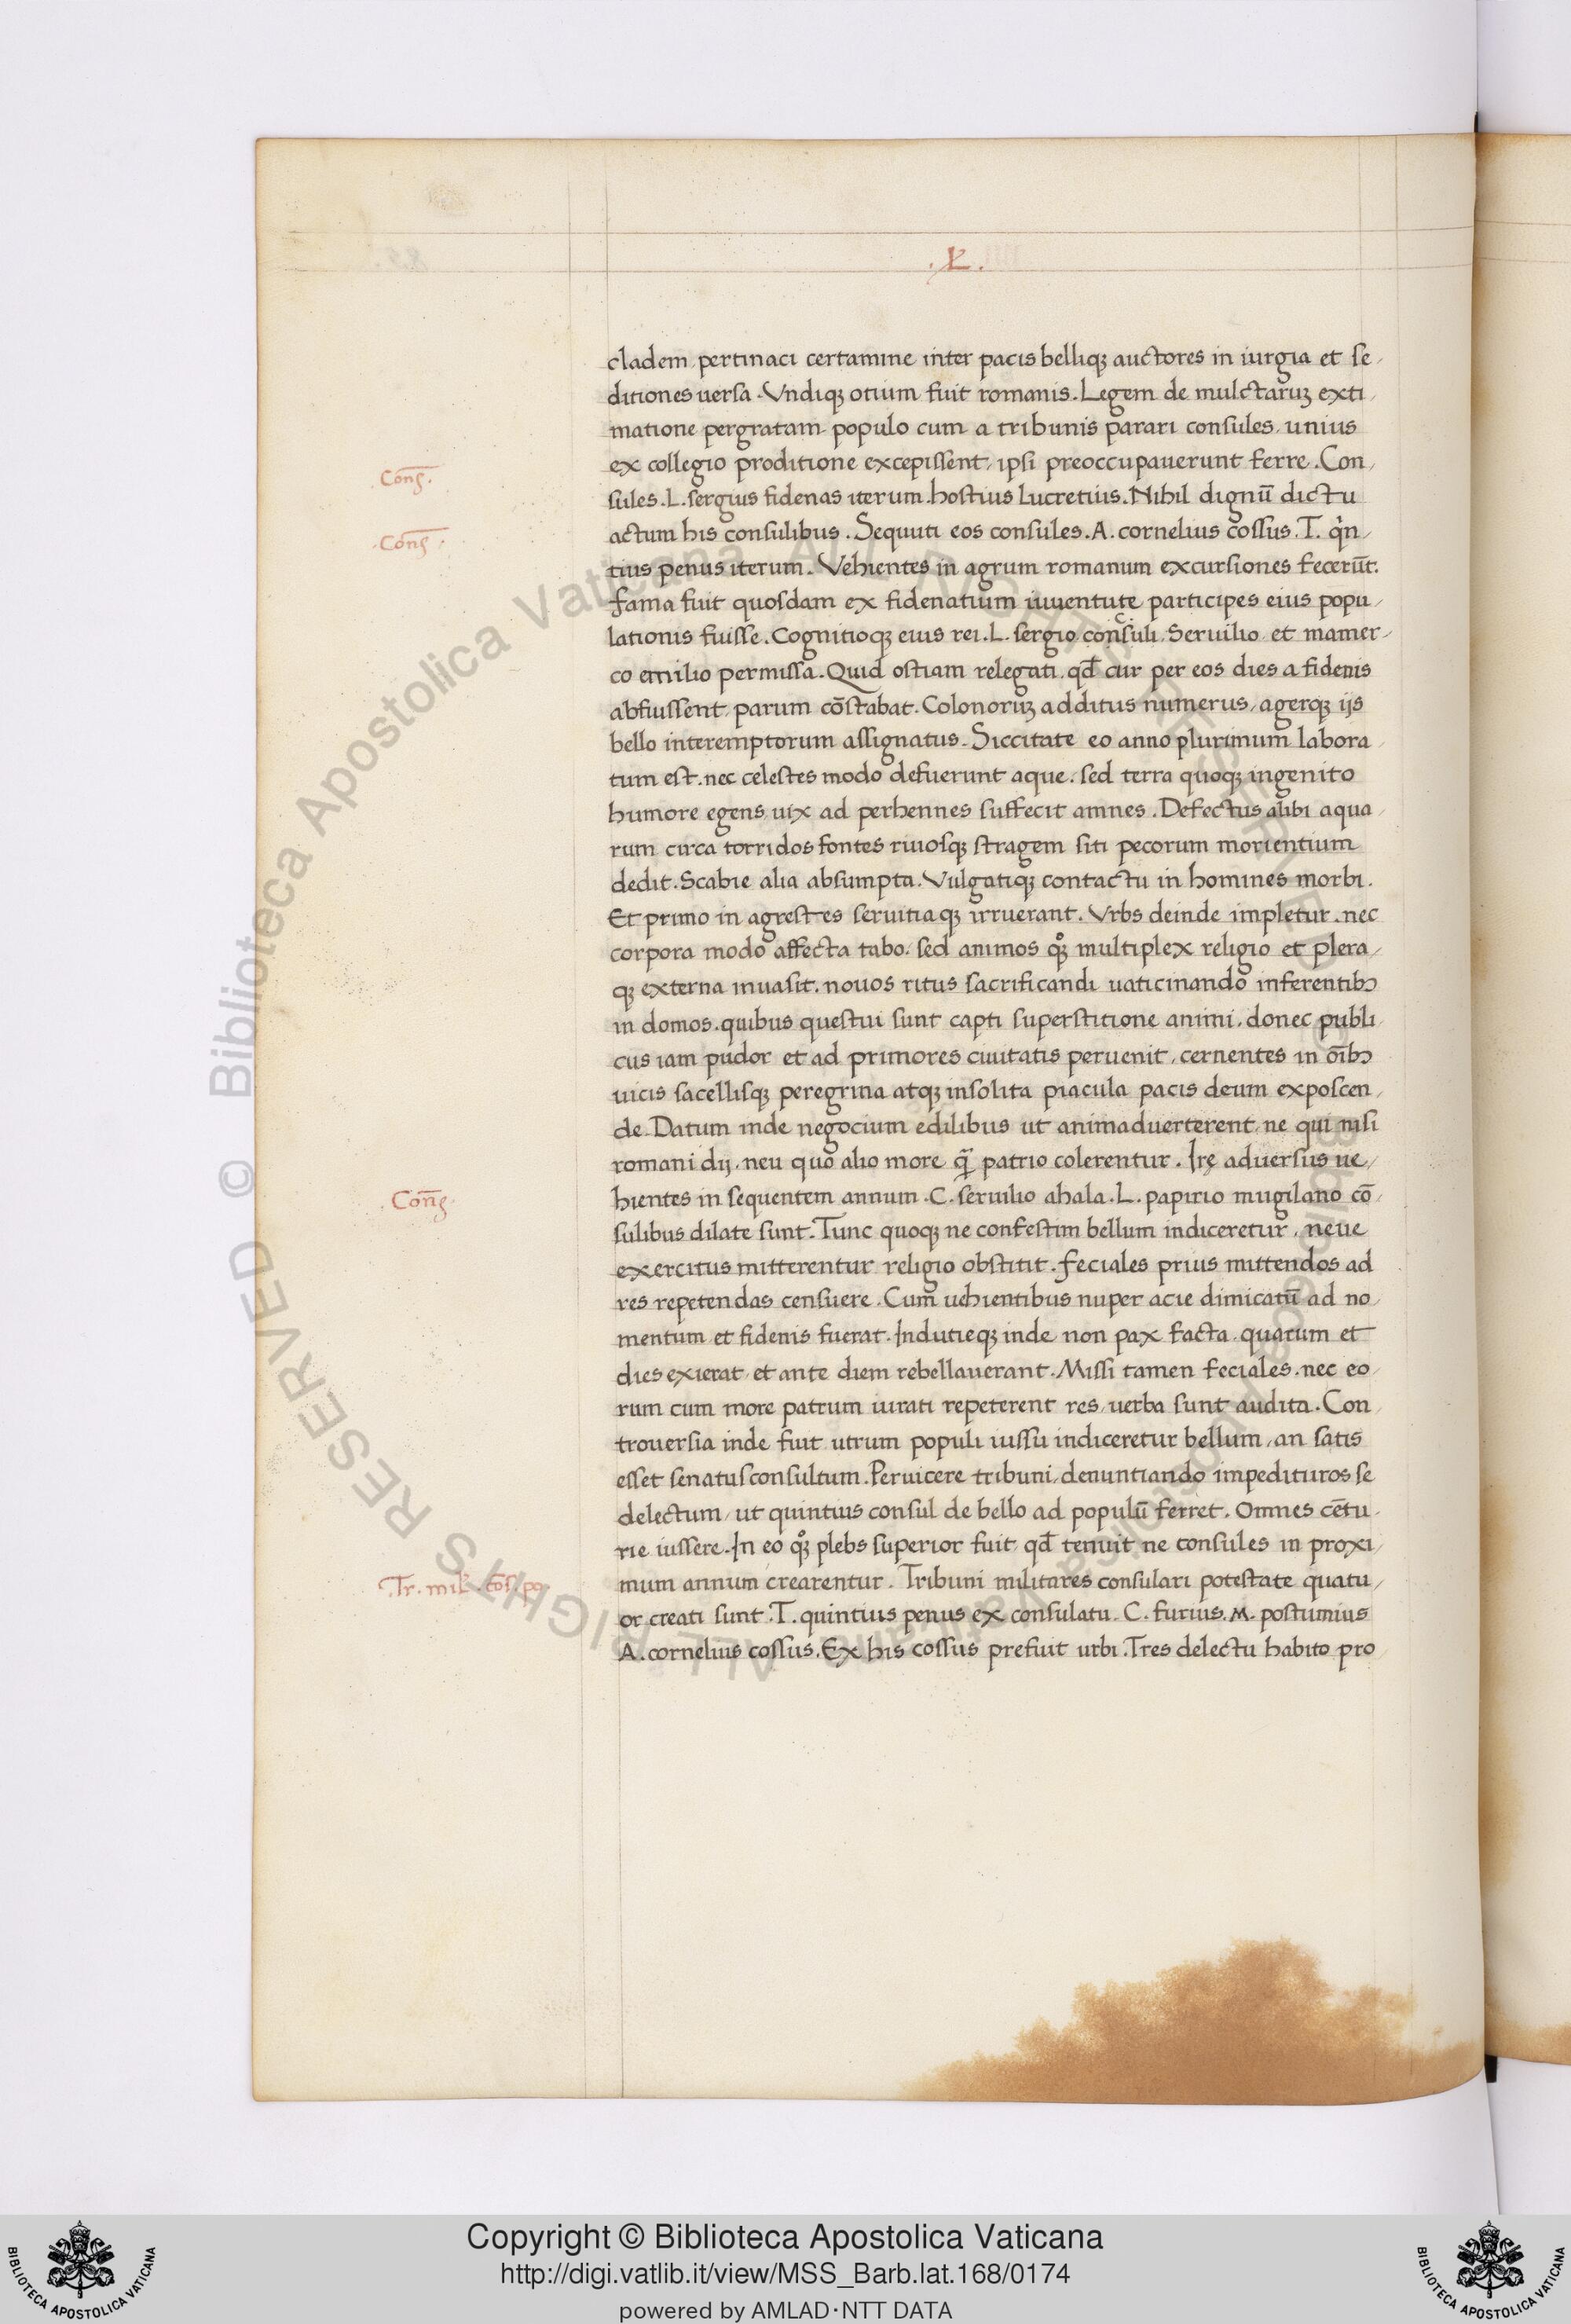 .L.
cladem pertinaci certamine inter pacis bellique auctores in iurgia et se
ditiones uersa. Vndiqꝫ otium fuit romanis. Legem de mulctaruꝫ exti
matione pergratam populo cum a tribunis parari consules, unius
ex collegio proditione excepissent, ipsi preoccupauerunt ferre. Con
Conſ.
sules. L. sergius fidenas iterum hostius Lucretius. Nihil dignū dictu
actum his consulibus. Sequuti eos consules. A. cornelius cossus. T. q̇n
.Conſ.
tius penus iterum. Vehientes in agrum romanum excursiones fecerūt.
fama fuit quosdam ex fidenatium iuuentute participes eius popu
lationis fuisse. Cognitioqꝫ eius rei. L. sergio consuli. Seruilio et mamer
co emilio permissa. Quid ostiam relegati, qđ cur per eos dies a fidenis
abfuissent, parum cōstabat. Colonoruꝫ additus numerus, agerqꝫ ijs
bello interemptorum assignatus. Siccitate eo anno plurimum labora
tum est. nec celestes modo defuerunt aque. sed terra quoqꝫ ingenito
humore egens uix ad perhennes suffecit amnes. Defectus alibi aqua
rum circa torridos fontes riuosqꝫ stragem siti pecorum morientium
dedit. Scabie alia absumpta. Vulgatiqꝫ contactu in homines morbi.
Et primo in agrestes seruitiaqꝫ irruerant. Vrbs deinde impletur. nec
corpora modo affecta tabo. sed animos qꝫͦ multiplex religio et plera
qꝫ externa inuasit. nouos ritus sacrificandi uaticinando inferentibꝫ
in domos. quibus questui sunt capti superstitione animi. donec publi
cus iam pudor et ad primores ciuitatis peruenit, cernentes in oībꝫ
uicis sacellisqꝫ peregrina atqꝫ insolita piacula pacis deum exposcen
de. Datum inde negocium edilibus ut animaduerterent, ne qui nisi
romani dij, neu quo alio more q̄ patrio colerentur. Irę aduersus ue
hientes in sequentem annum. C. seruilio ahala. L. papirio mugilano cō
.Conſ.
sulibus dilate sunt. Tunc quoqꝫ ne confestim bellum indiceretur, neue
exercitus mitterentur religio obstitit. feciales prius mittendos ad
res repetendas censuere. Cum uehientibus nuper acie dimicatū ad no
mentum et fidenis fuerat. Indutieqꝫ inde non pax facta. quarum et
dies exierat, et ante diem rebellauerant. Missi tamen feciales. nec eo
rum cum more patrum iurati repeterent res, uerba sunt audita. Con
trouersia inde fuit utrum populi iussu indiceretur bellum, an satis
esset senatusconsultum. Peruicere tribuni, denuntiando impedituros se
delectum, ut quintius consul de bello ad populū ferret. Omnes cētu
rie iussere. In eo qꝫͦ plebs superior fuit, qđ tenuit ne consules in proxi
mum annum crearentur. Tribuni militares consulari potestate quatu
.Tr. mil. cōs. po
or creati sunt. T. quintius penus ex consulatu. C. furius. M. postumius
A. cornelius cossus. Ex his cossus prefuit urbi. Tres delectu habito pro
© Biblioteca Apostolica Vaticana ALL RIGHTS RESERVED
Copyright © Biblioteca Apostolica Vaticana
http://digi.vatlib.it/view/MSS_Barb.lat.168/0174
powered by AMLAD·NTT DATA
BIBLIOTECA APOSTOLICA VATICANA
BIBLIOTECA APOSTOLICA VATICANA